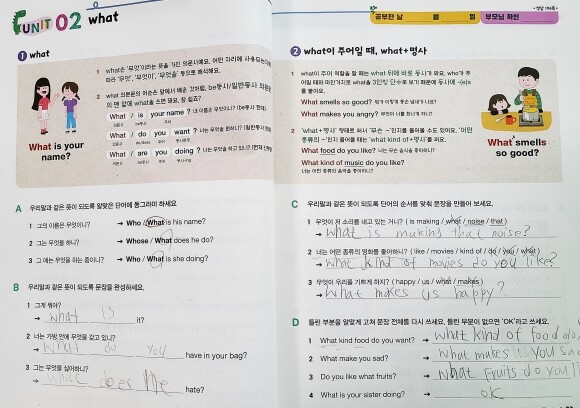 UNIT 02 what
공부한 날 월 일 부모님 확인
정답 196쪽
1 what
1 what은 '무엇'이라는 뜻을 가진 의문사예요. 어떤 자리에 사용되는지에
따라 '무엇', '무엇이', '무엇을' 등으로 해석해요.
2 what 의문문의 어순은 앞에서 배운 것처럼, be동사/일반동사 의문문
의 맨 앞에 what을 쓰면 돼요. 참 쉽죠?
What / is your name? 너의 이름은 무엇이니? (be동사 현재)
What / do you want? 너는 무엇을 원하니? (일반동사 현재)
What / are you doing? 너는 무엇을 하고 있니?
What is your
name?
A 우리말과 같은 뜻이 되도록 알맞은 단어에 동그라미 하세요.
1 그의 이름은 무엇이니? → Who / What is his name?
2 그는 무엇을 하니? → Whose / What does he do?
3 그 애는 무엇을 하는 중이니? → Who / What is she doing?
B 우리말과 같은 뜻이 되도록 문장을 완성하세요.
1 그게 뭐야?
→ what is it?
2 너는 가방 안에 무엇을 갖고 있니?
→ what do you have in your bag?
3 그는 무엇을 싫어하니?
→ what does he hate?
2 what이 주어일 때, what+명사
1 what이 주어 역할을 할 때는 what 뒤에 바로 동사가 와요. who가 주
어일 때와 마찬가지로 what을 3인칭 단수로 보기 때문에 동사에 -(e)s
를 붙여요.
What smells so good? 뭐가 이렇게 좋은 냄새가 나니?
What makes you angry? 무엇이 너를 화나게 하니?
2 'what+명사' 형태로 써서 '무슨 ~'인지를 물어볼 수도 있어요. '어떤
종류의 ~'인지를 물어볼 때는 'what kind of+명사'를 써요.
What food do you like? 너는 무슨 음식을 좋아하니?
What kind of music do you like?
너는 어떤 종류의 음악을 좋아하니?
What smells
so good?
C 우리말과 같은 뜻이 되도록 단어의 순서를 맞춰 문장을 만들어 보세요.
1 무엇이 저 소리를 내고 있는 거니? ( is making / what / noise / that )
→ what is making that noise?
2 너는 어떤 종류의 영화를 좋아하니? ( like / movies / kind of / do / you / what )
→ what kind of movies do you like?
3 무엇이 우리를 기쁘게 하지? ( happy / us / what / makes )
→ what makes us happy?
D 틀린 부분을 알맞게 고쳐 문장 전체를 다시 쓰세요. 틀린 부분이 없으면 'OK'라고 쓰세요.
1 What kind food do you want? → what kind of food do
2 What make you sad? → what makes you sad
3 Do you like what fruits? → what fruits do you like
4 What is your sister doing? → OK